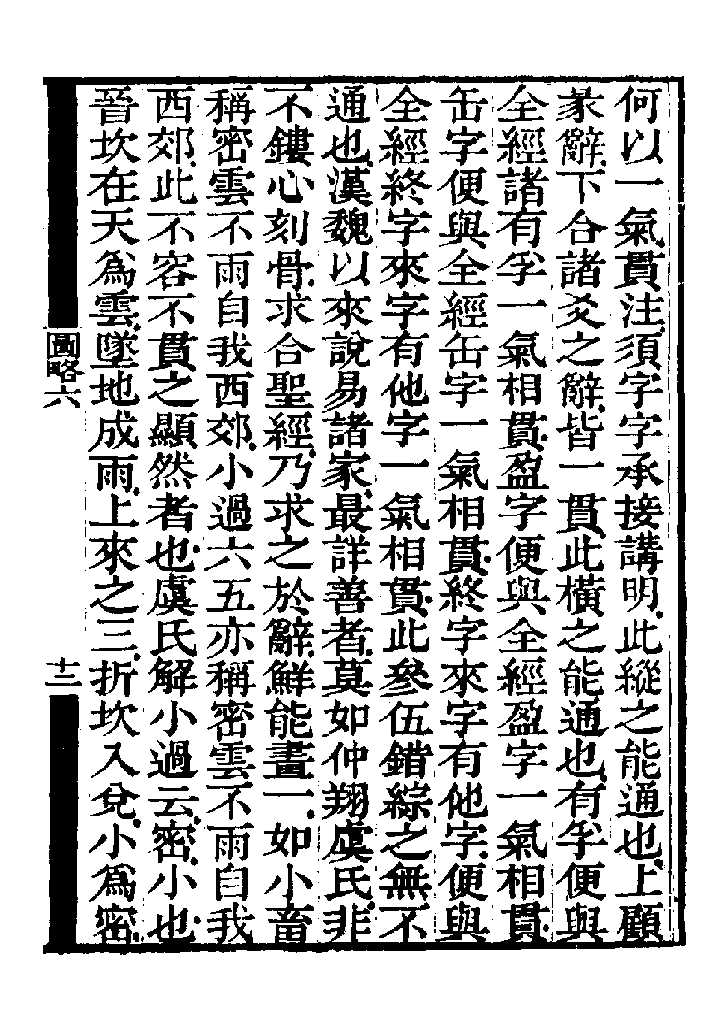 何以一氣貫注須字字承接講明此縱之能通也上顧
彖辭下合諸爻之辭皆一貫此橫之能通也有孚便與
全經諸有孚一氣相貫盈字便與全經盈字一氣相貫
缶字便與全經缶字一氣相貫終字來字有他字便與
全經終字來字有他字一氣相貫此參伍錯綜之無不
通也漢魏以來說易諸家最詳善者莫如仲翔虞氏非
不鏤心刻骨求合聖經乃求之於辭鮮能畫一如小畜
稱密雲不雨自我西郊小過六五亦稱密雲不雨自我
西郊此不容不貫之顯然者也虞氏解小過云密小也
晉坎在天爲雲墜地成雨上來之三折坎入兌小爲密
圖略六
十二